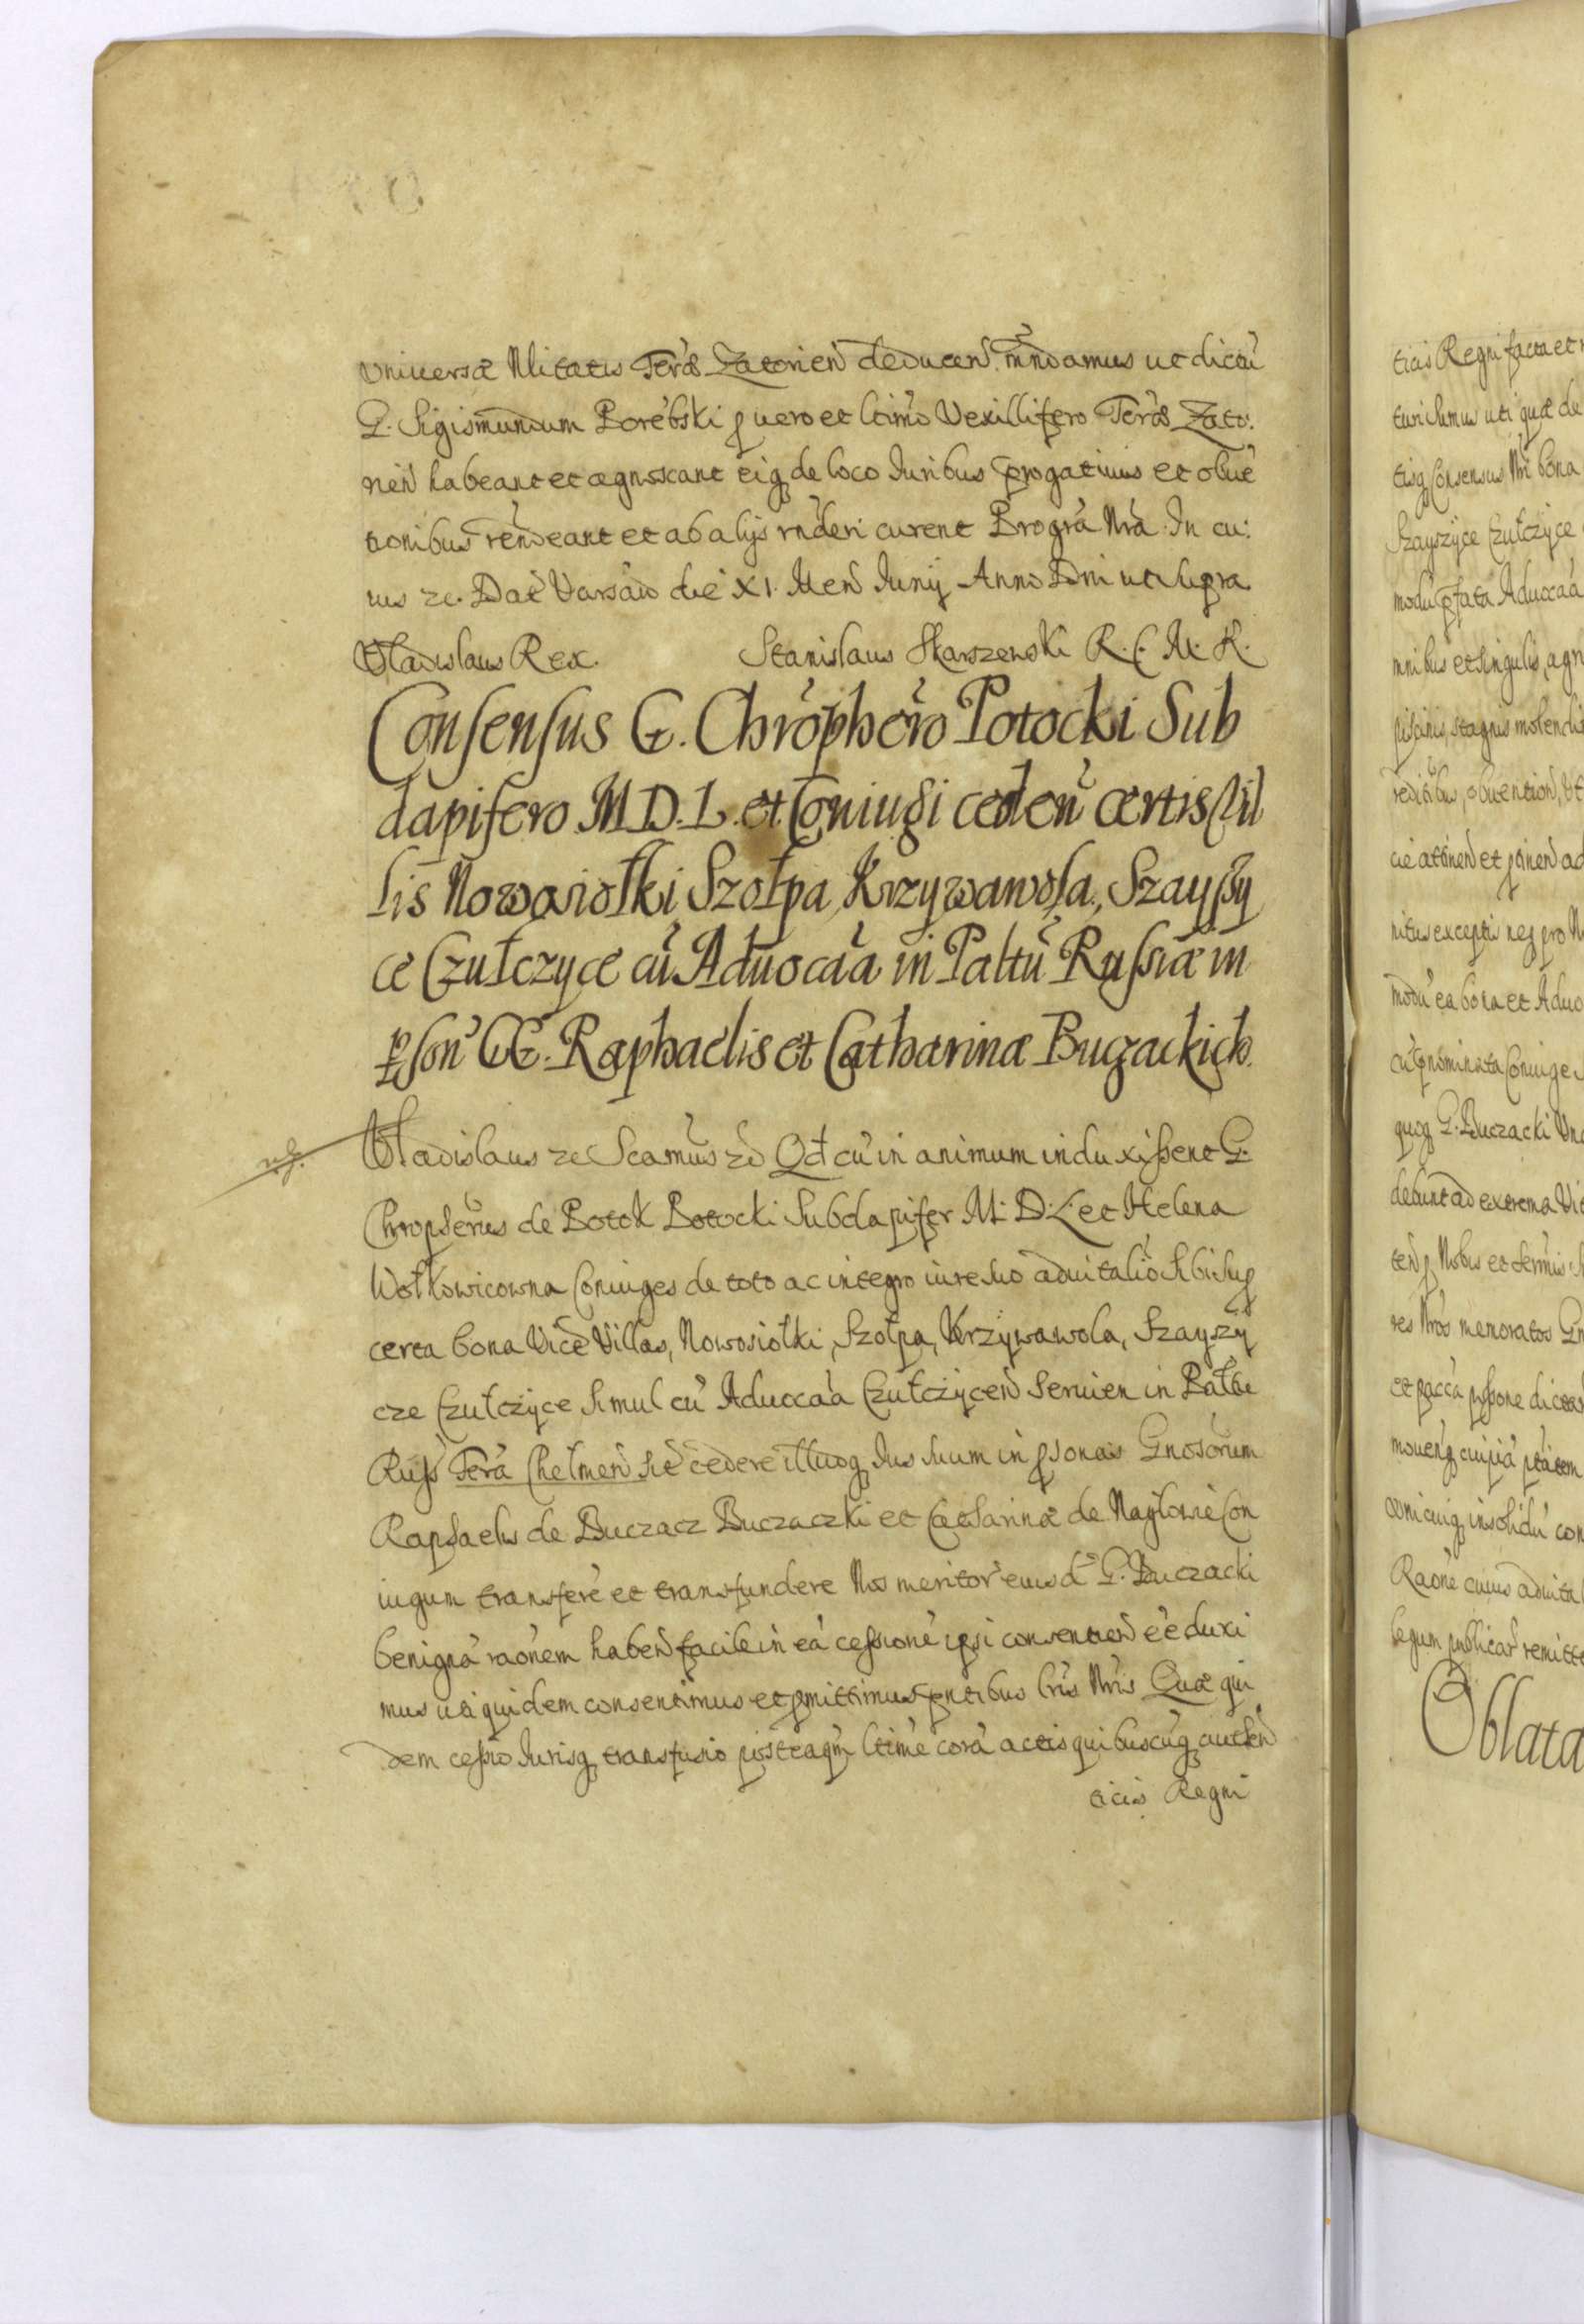 vniuersæ Nlitatis Terræ Zatorien deducen. mndamus ut dictu
G. Sigismundum Porebski p uero et ltimo Vexillifero Terræ Zato:
rien habeant et agnoscant eiq de loco Iuribus progatiuis et obue
tionibus rendeant et ab alijs rnderi curent Pro gra Nra. In cu:
ius rc. Dat Varsaw die XI. Men Iunij Anno Dni ut supra
Vladislaus Rex. Stanislaus Skarszewski R. C. M. R.
Consensus G. Chrophero Potocki Sub
dapifero M D. L. et Coniugi ceden certis Vil
lis Nowosiołki Szołpa, Krzywawola, Szayszy
ce Czułczyce cu Aduocaa in Paltu Russiæ in
pson GG. Raphaelis et Catharinæ Bugackich.
Vladislaus rc Scamus rc Qd cu in animum induxissent G.
Chropherus de Potok Potocki Subdapifer M. D. L. et Helena
Wołkowicowna Coniuges de toto ac integro iure suo aduitalio sibi sup
certa bona Vice Villas, Nowosiołki, Szołpa, Krzywawola, Szayszy
cze Czułczyce simul cu Aduocaa Czułczycen seruien in Paltu
Russ Terra Chelmen sit cedere illudq Ius suum in psonas Gnosorum
Raphaelis de Buczacz Buczaczki et Catharinæ de Nagłowic Con
iugum transfere et transfundere Nos meritor eiusd G. Buczacki
benigna raonem haben facile in ea cessione ipsi consentien ee duxi
mus uti quidem consentimus et pmittimus pntibus lris Nris Quæ qui
dem cessio Iurisq transfusio posteaqm ltime cora actis quibuscuq authen
ticis Regni
ticis Regni facta et
turi sumus uti quæ de
tisq Consensus Nri bona
Szayszyce Czułczyce
modu pfata Aduocaa
mnibus et singulis, agr
piscinis, stagnis molendis
reditibus, obuention, ut
cie attinen et ptinen ad
nitus exceptis neq pro N
modu ea bona et Aduo
cu pnominata Coniuge
quoq G. Buczacki Vna
debunt ad extrema Vit
ten p Nobis et sermis
res Nros memoratos Gn
et pacca pssone dictar
mouenq cuipia ptatem
unicuiq in solidu con
Raone cuius aduital
legum publicar remitte
Oblata